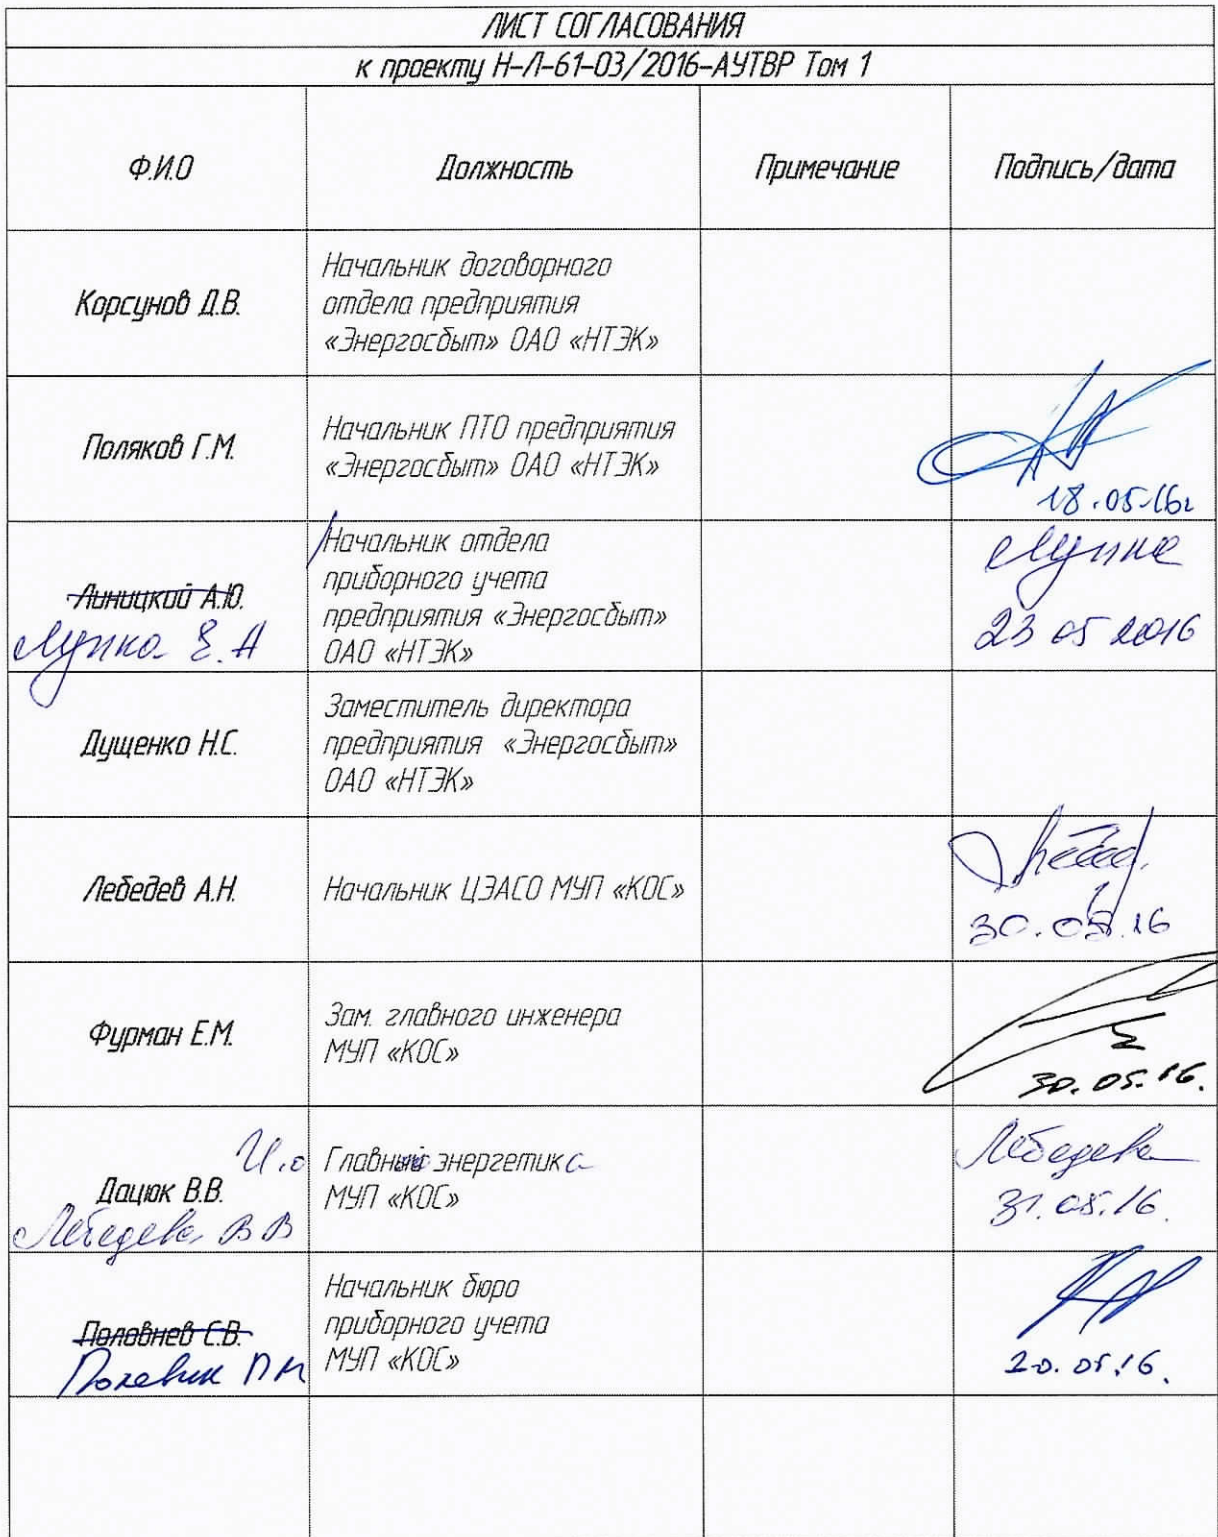 ЛИСТ СОГЛАСОВАНИЯ
к проекту Н-Л-61-03/2016-АУТВР Том 1
Ф.И.О
Должность
Примечание
Подпись/дата
Корсунов Д.В.
Начальник договорного
отдела предприятия
«Энергосбыт» ОАО «НТЭК»
Поляков Г.М.
Начальник ПТО предприятия
«Энергосбыт» ОАО «НТЭК»
18.05.16г
Линицкий А.Ю.
Лупка Е.А
Начальник отдела
приборного учета
предприятия «Энергосбыт»
ОАО «НТЭК»
Лупка
23 05 2016
Дущенко Н.С.
Заместитель директора
предприятия «Энергосбыт»
ОАО «НТЭК»
Лебедев А.Н.
Начальник ЦЭАСО МУП «КОС»
30.05.16
Фурман Е.М.
Зам. главного инженера
МУП «КОС»
30.05.16.
И.о
Дацюк В.В.
Лебедева В В
Главного энергетика
МУП «КОС»
Лебедева
31.05.16.
Половнев С.В.
Полевик П М
Начальник бюро
приборного учета
МУП «КОС»
20.05.16.